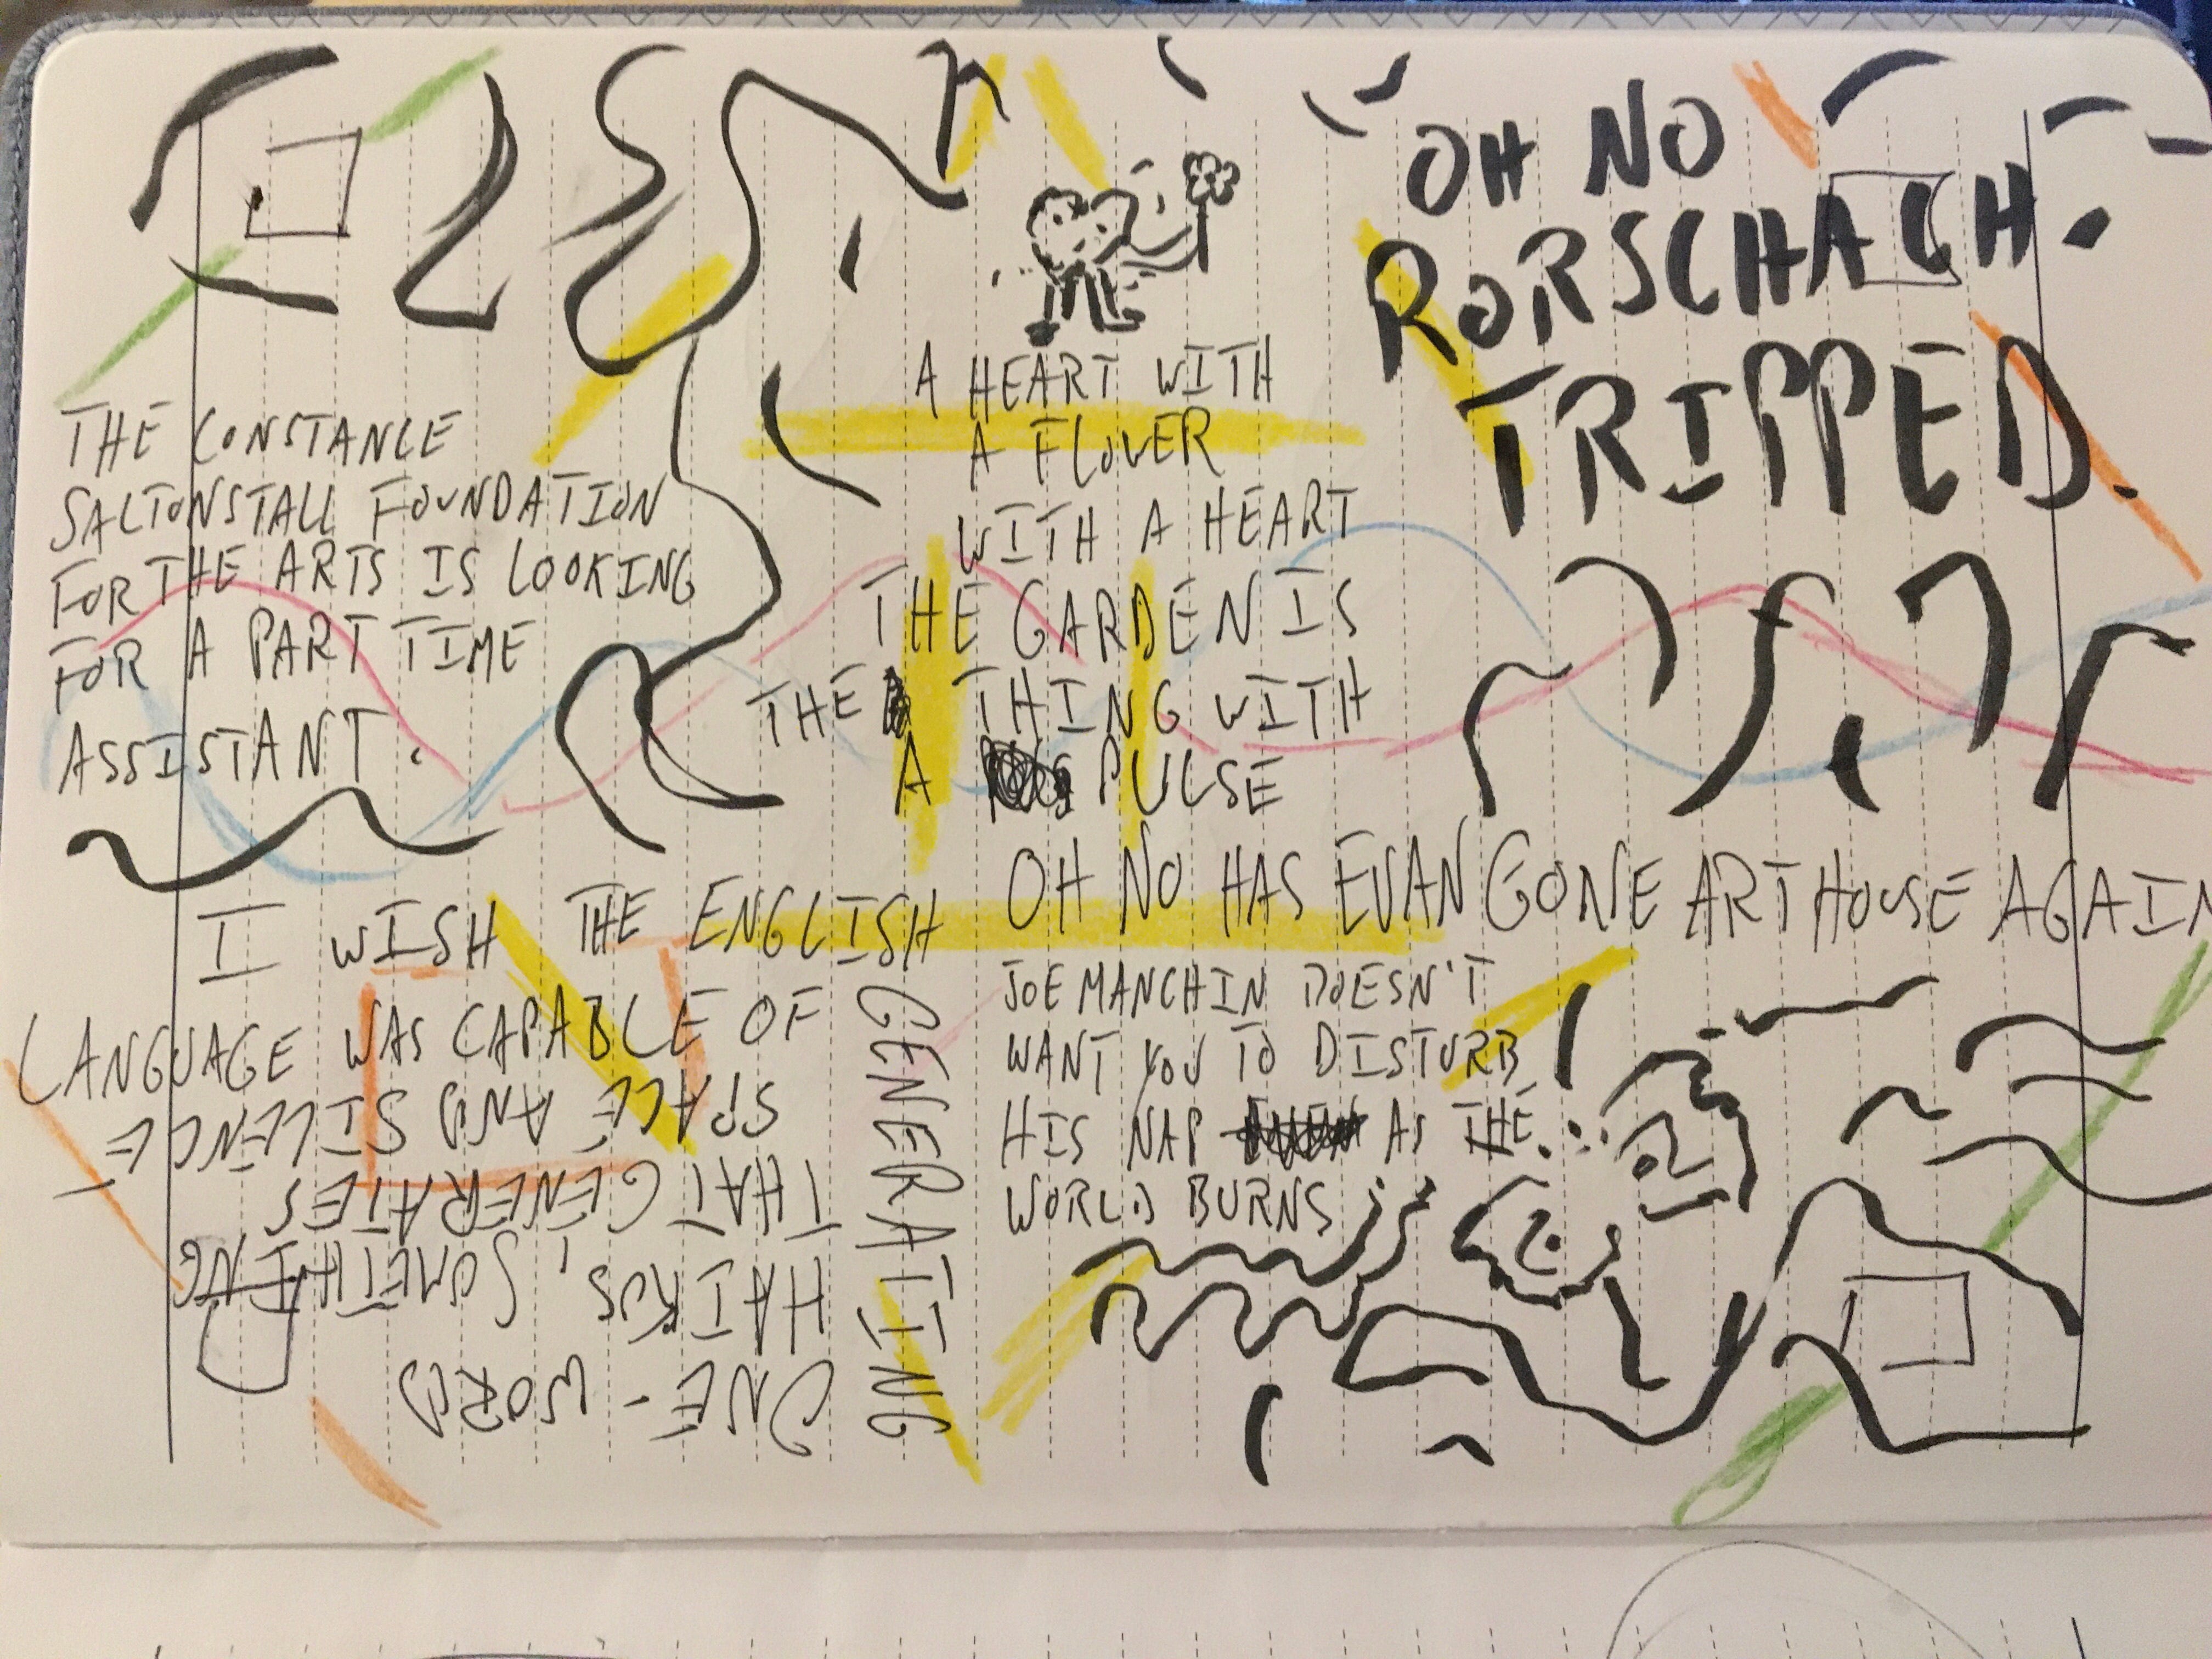 OH NO
RORSCHACH.
TRIPPED.
THE CONSTANCE
SALTONSTALL FOUNDATION
FOR THE ARTS IS LOOKING
FOR A PART TIME
ASSISTANT.
A HEART WITH
A FLOWER
WITH A HEART
THE GARDEN IS
THE THING WITH
A PULSE
OH NO HAS EVAN GONE ARTHOUSE AGAIN
I WISH THE ENGLISH
LANGUAGE WAS CAPABLE OF
GENERATING
ONE-WORD
HAIKUS, SOMETHING
THAT GENERATES
SPACE AND SILENCE -
JOE MANCHIN DOESN'T
WANT YOU TO DISTURB
HIS NAP AS THE
WORLD BURNS